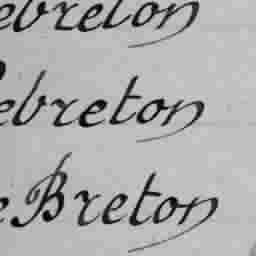 ebreton
ebreton
e Breton